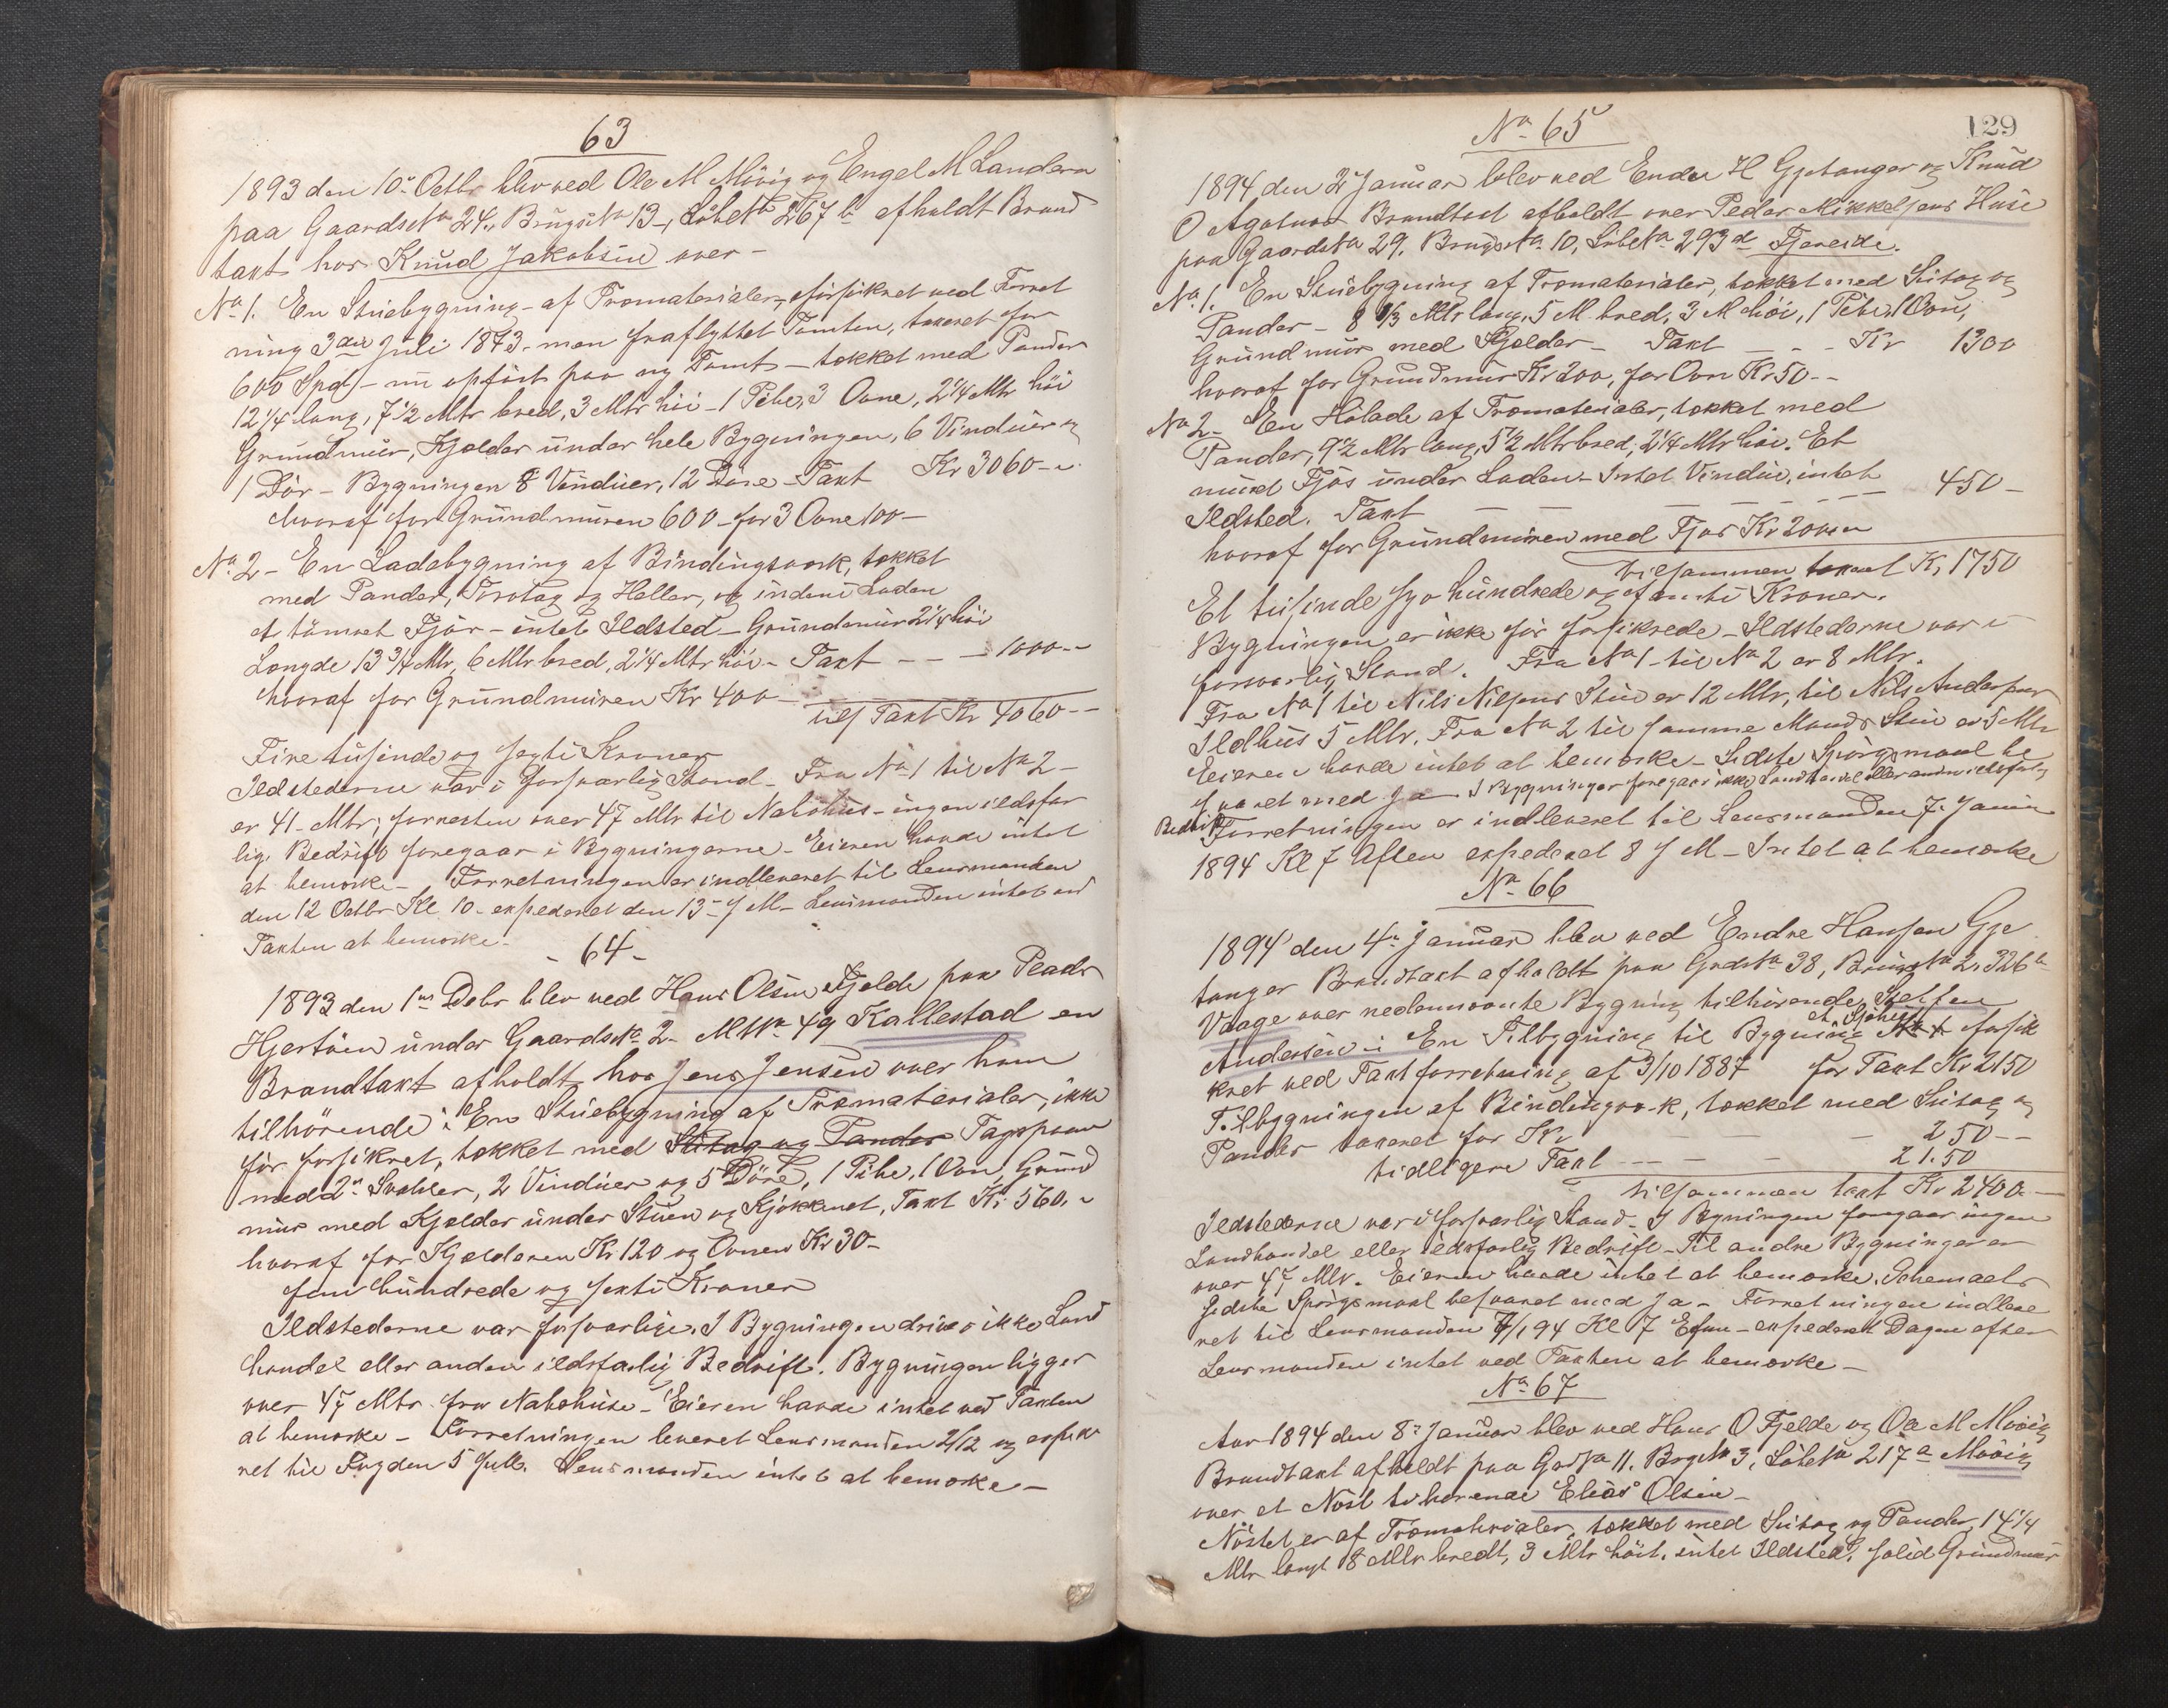 63
1893 den 10de Octbr blev ved Ole M Mövig og Engel M Landern
paa Gaards No 24, Brugs No 13, Löbe No 267 b afholdt Brand
taxt hos Knud Jakobsen over -
No 1. En Stuebygning - af Træmaterialer, forsikret ved Forret
ning 3die Juli 1873. men fraflyttet Tomten, taxeret for
600 Spd - nu opfört paa ny Tomt - tækket med Pander
12 1/4 lang, 7 1/2 Mtr bred, 3 Mtr höi - 1 Pibe, 3 Ovne, 2 1/4 Mtr höi
Grundmur, Kjælder under hele Bygningen, 6 Vinduer og
1 Dör - Bygningen 8 Vinduer, 12 Döre - Taxt Kr 3060 -
hvoraf for Grundmuren 600 - for 3 Ovne 100 -
No 2 - En Ladebygning af Bindingsværk, tækket
med Pander, Torvtag og Heller, og inden i Laden
et tömret Fjös - intet Ildsted - Grundmur 2 1/4 höi
Længde 13 3/4 Mtr, 6 Mtr bred, 2 1/4 Mtr höi - Taxt - - - 1000 - -
hvoraf for Grundmuren Kr 400 -
tils Taxt Kr 4060 - -
Fire tusinde og sexti Kroner
Ildstederne var i forsvarlig Stand - Fra No 1 til No 2 -
er 41 - Mtr; forresten over 47 Mtr til Nabohus - ingen ildsfar
lig Bedrift foregaar i Bygningerne - Eieren havde intet
at bemærke - Forretningen er indleveret til Lensmanden
den 12 Octbr Kl 10 - expederet den 13de s M - Lensmanden intet ved
Taxten at bemærke -
- 64 -
1893 den 1ste Debr blev ved Hans Olsen Fjelde paa Plads
Hjertöen under Gaards No 2 - M No 49 Kallestad en
Brandtaxt afholdt hos Jens Jensen over ham
tilhörende: En Stuebygning af Træmaterialer, ikke
för forsikret, tækket med Stutag og Pander Tagspaan
med 2 Svahler, 2 Vinduer og 5 Döre, 1 Pibe, 1 Ovn, Grund
mur med Kjælder under Stuen og Kjökkenet, Taxt Kr 560. -
hvoraf for Kjælderen Kr 120 og Ovnen Kr 30 -
fem hundrede og sexti Kroner
Ildstederne var forsvarlige. I Bygningen drives ikke Land
handel eller anden ildsfarlig Bedrift. Bygningen ligger
over 47 Mtr fra Nabohuse - Eieren havde intet ved Taxten
at bemærke - Forretningen leveret Lensmanden 2/12 og expede
ret til Fogden 5 s M. Lensmanden intet at bemærke -
129
No 65
1894 den 2 Januar blev ved Endre H Gjetanger og Knud
O Agotnes Brandtaxt afholdt over Peder Mikkelsens Huse
paa Gaards No 29. Brugs No 10, Löbe No 293 d Fjereide.
No 1. En Stuebygning af Træmaterialer, tækket med Sutag og
Pander - 8 1/3 Mtr lang, 5 M bred, 3 M höi, 1 Pibe, 1 Ovn,
Grundmur med Kjelder - Taxt - - - Kr 1300
hvoraf for Grundmur Kr 200, for Ovn Kr 50 - -
No 2 - En Hölade af Træmaterialer, tækket med
Pander, 9 1/2 Mtr lang, 5 1/2 Mtr bred, 2 1/4 Mtr höi. Et
muret Fjös under Laden - Intet Vindue, intet
Ildsted. Taxt - - - - - - 450 -
hvoraf for Grundmuren med Fjös Kr 200
tilsammen taxeret Kr 1750
Et tusinde syv hundrede og femti Kroner.
Bygningen er ikke för forsikrede - Ildstederne var i
forsvarlig Stand. Fra No 1 til No 2 er 8 Mtr.
Fra No 1 til Nils Nilsens Stue er 12 Mtr, til Nils Andersens
Ildhus 5 Mtr. Fra No 2 til samme Mands Stue er 5 Mtr
Eieren havde intet at bemærke - Sidste Spörgsmaal be
svaret med Ja - I Bygninger foregaar ikke Landhandel eller anden ildsfarlig
Bedrift Forretningen er indleveret til Lensmanden 7 Januar
1894 Kl 7 Aften expederet 8 s M - Intet at bemærke
No 66
1894 den 4de Januar blev ved Endre Hansen Gje
tanger Brandtaxt afholdt paa Gards No 38, Brugs No 2. 326 b
Vaage over nedennævnte Bygning tilhörende Steffen
Andersen: En Tilbygning til Bygning et Sjöhus No 1 forsik
kret ved Taxtforretning af 3/10 1887 for Taxt Kr 2150
Tilbygningen af Bindingværk, tækket med Sutag og
Pander taxeret for Kr - - - 250 - -
tidligere Taxt - - - - 21.50
tilsammen taxt Kr 2400 -
Ildstederne var i forsvarlig Stand - I Bygningen foregaar ingen
Landhandel eller ildsfarlig Bedrift - Til andre Bygninger er
over 47 Mtr. Eieren havde intet at bemærke. Schemaets
sidste Spörgsmaal besvaret med Ja - Forretningen indleve
ret til Lensmanden 7/1 94 Kl 7 Efm - expederet Dagen efter
Lensmanden intet ved Taxten at bemærke -
No 67
Aar 1894 den 8de Januar blev ved Hans O Fjelde og Ole M Mövig
Brandtaxt afholdt paa Gards No 11. Brgs No 3, Löbe No 217 a Mövig
over et Nöst tilhörende Elias Olsen -
Nöstet er af Træmaterialer, tækket med Sutag og Pander, 14 1/4
Mtr langt 8 Mtr bredt, 3 Mtr höit, intet Ildsted, solid Grundmur